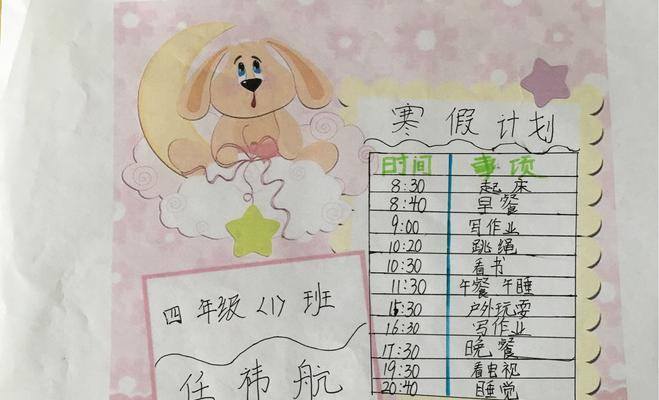 寒假计划
时间 事项
8:30 起床
8:40 早餐
9:00 写作业
10:20 跳绳
10:30 看书
11:30 午餐 午睡
15:30 户外玩耍
16:30 写作业
17:30 晚餐
19:30 看电视
20:40 睡觉
四年级〈1〉班
任祎航